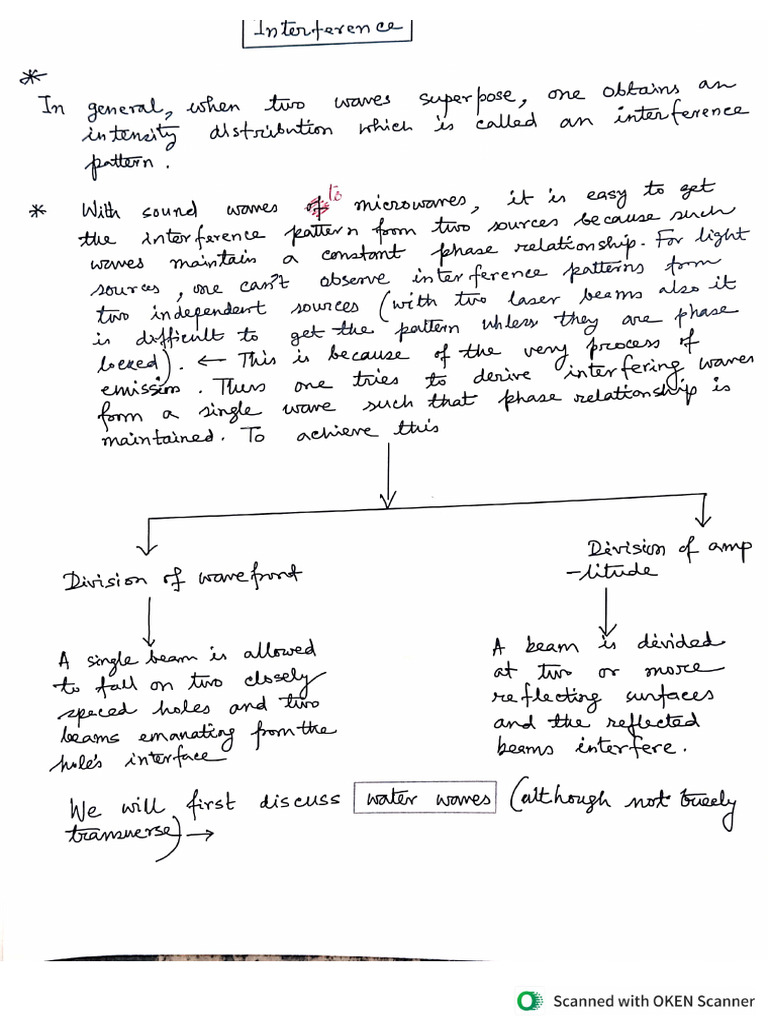 Interference
*
In general, when two waves superpose, one obtains an
intensity distribution which is called an interference
pattern.
* With sound waves to microwaves, it is easy to get
the interference pattern from two sources because such
waves maintain a constant phase relationship. For light
sources, one can't observe interference patterns from
two independent sources (with two laser beams also it
is difficult to get the pattern unless they are phase
locked). ← This is because of the very process of
emission. Thus one tries to derive interfering waves
form a single wave such that phase relationship is
maintained. To achieve this
Division of wavefront
Division of amp
-litude
A single beam is allowed
to fall on two closely
spaced holes and two
beams emanating from the
holes interface
A beam is divided
at two or more
reflecting surfaces
and the reflected
beams interfere.
We will first discuss water waves (although not truely
transverse) →
Scanned with OKEN Scanner